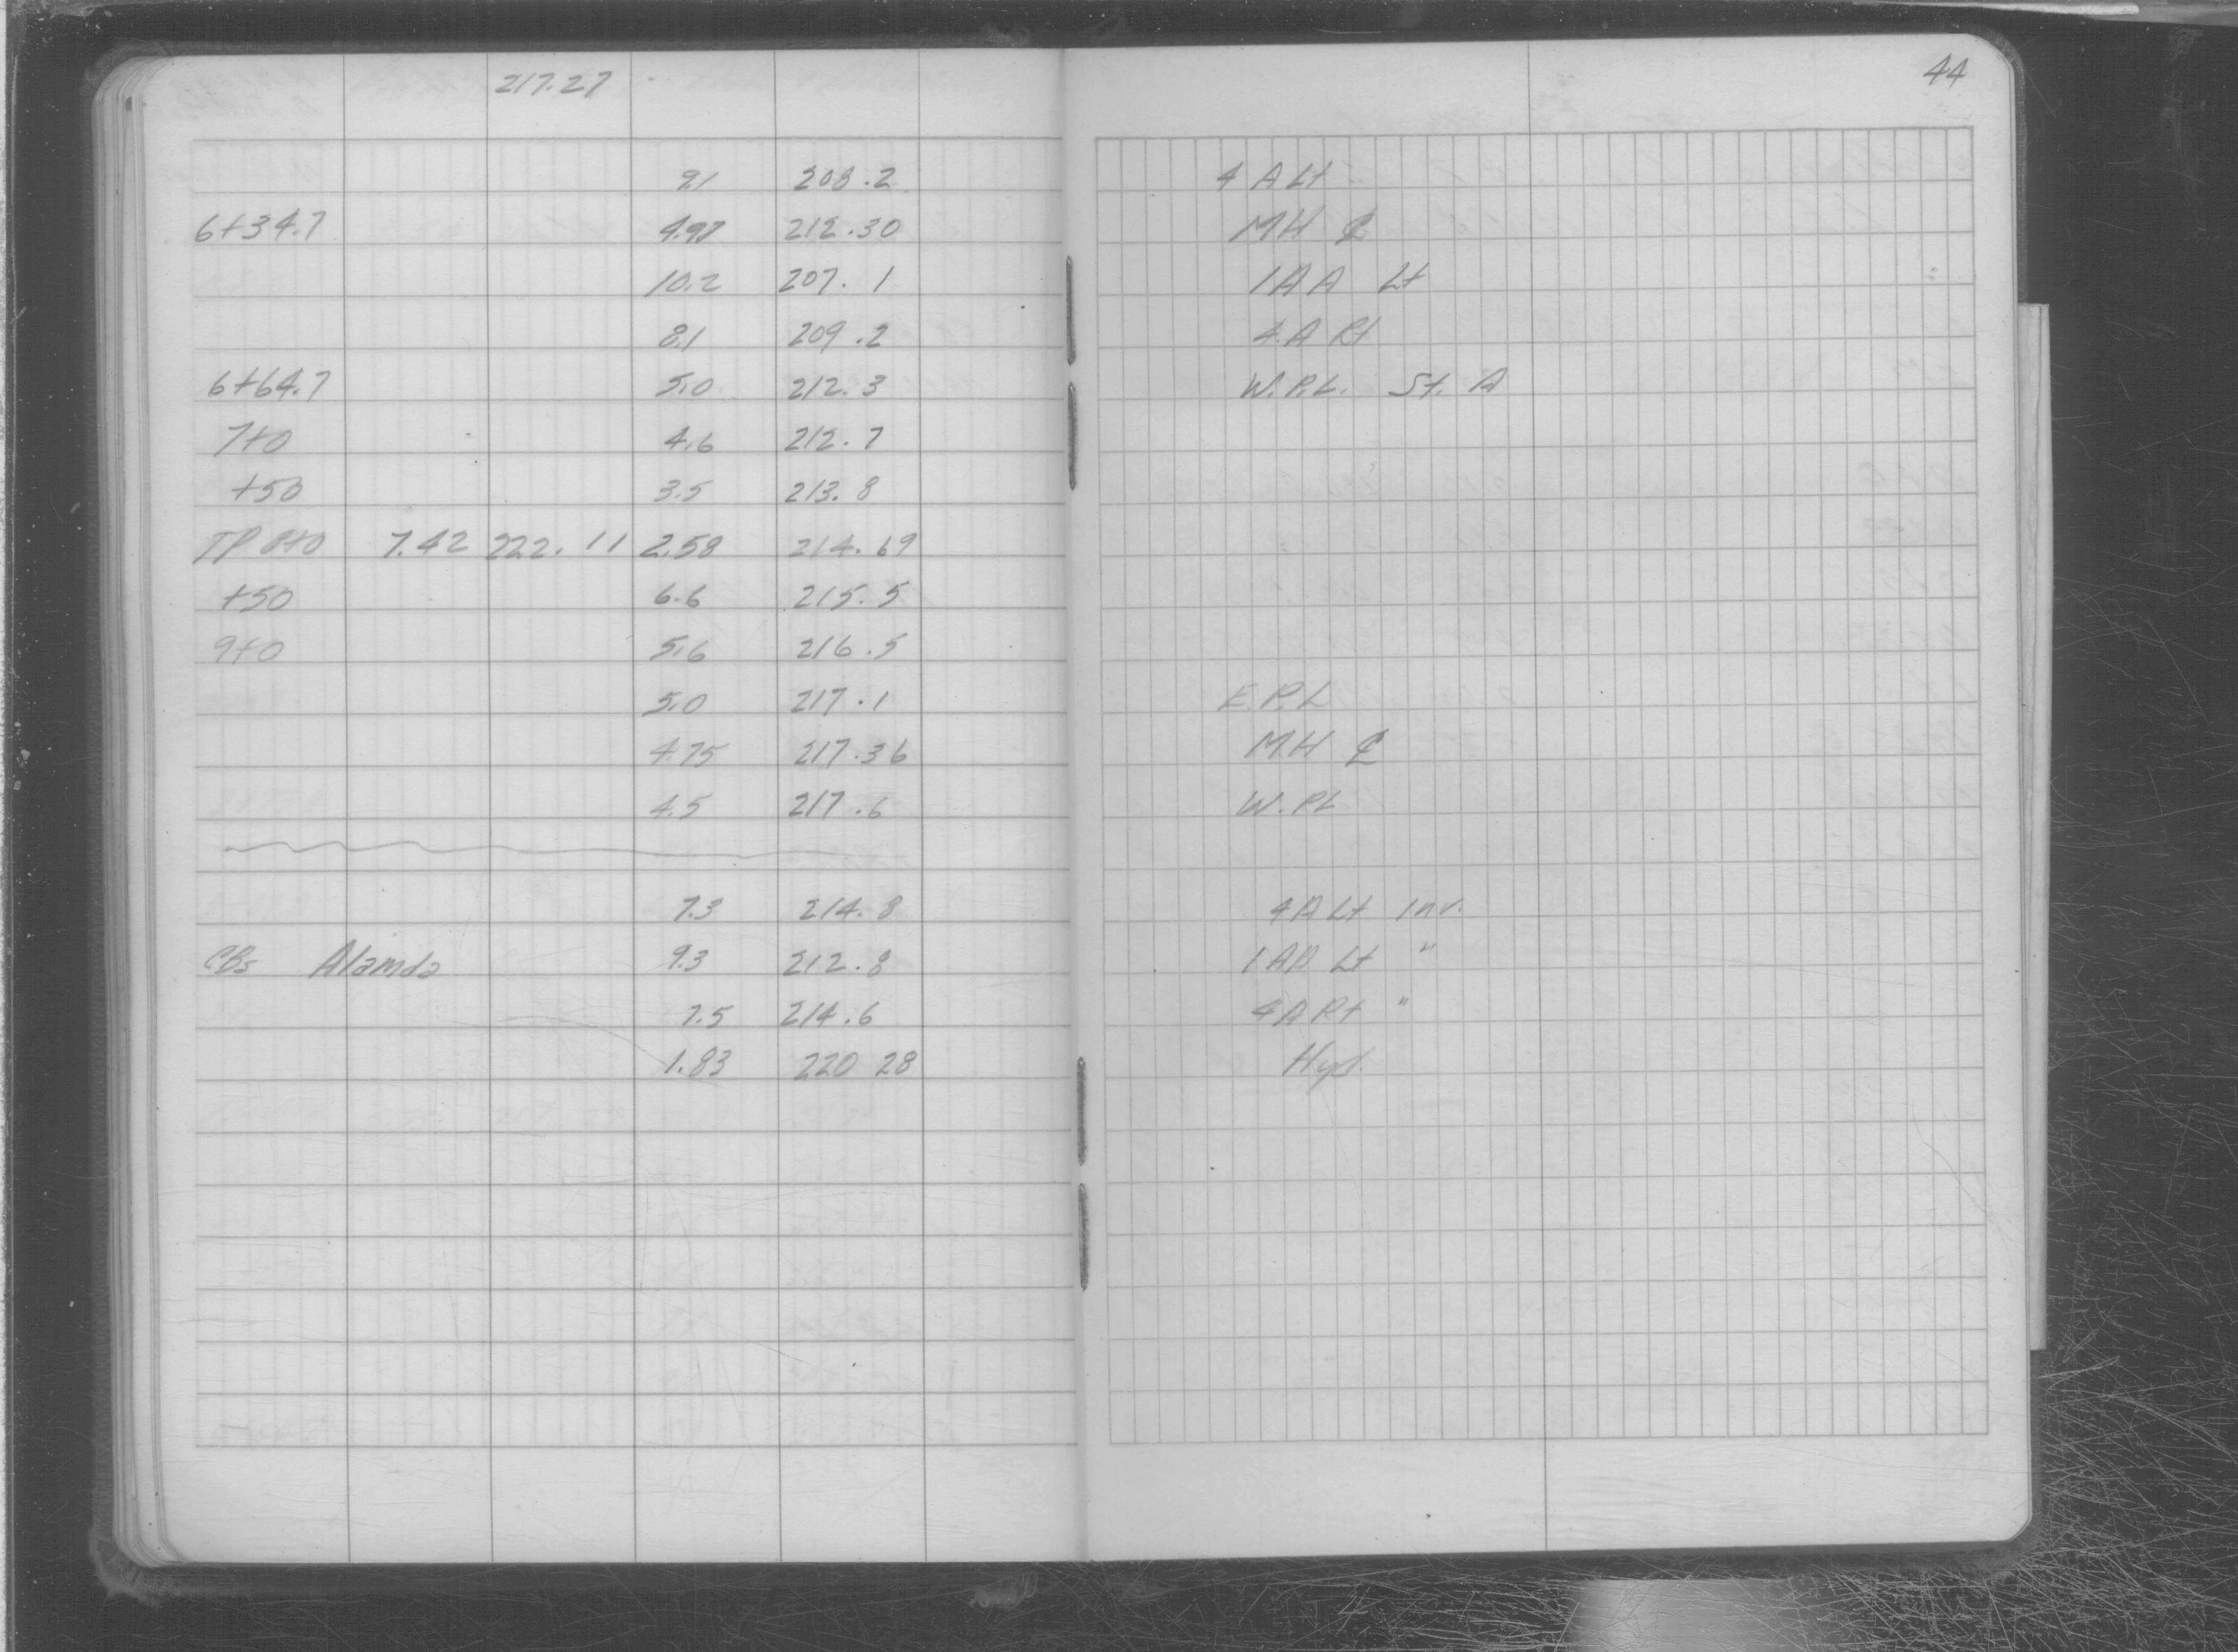 217.27
44
9.1 208.2 4 A Lt
6+34.7 4.97 212.30 MH ℄
10.2 207.1 1AA Lt
8.1 209.2 4 A Rt
6+64.7 5.0 212.3 W.P.L. St. A
7+0 4.6 212.7
+50 3.5 213.8
TP 8+0 7.42 222.11 2.58 214.69
+50 6.6 215.5
9+0 5.6 216.5
5.0 217.1 E.P.L
4.75 217.36 MH ℄
4.5 217.6 W.PL
7.3 214.8 4A Lt Inv.
CBs Alamda 9.3 212.8 1AA Lt "
7.5 214.6 4A Rt "
1.83 220 28 Hyd.